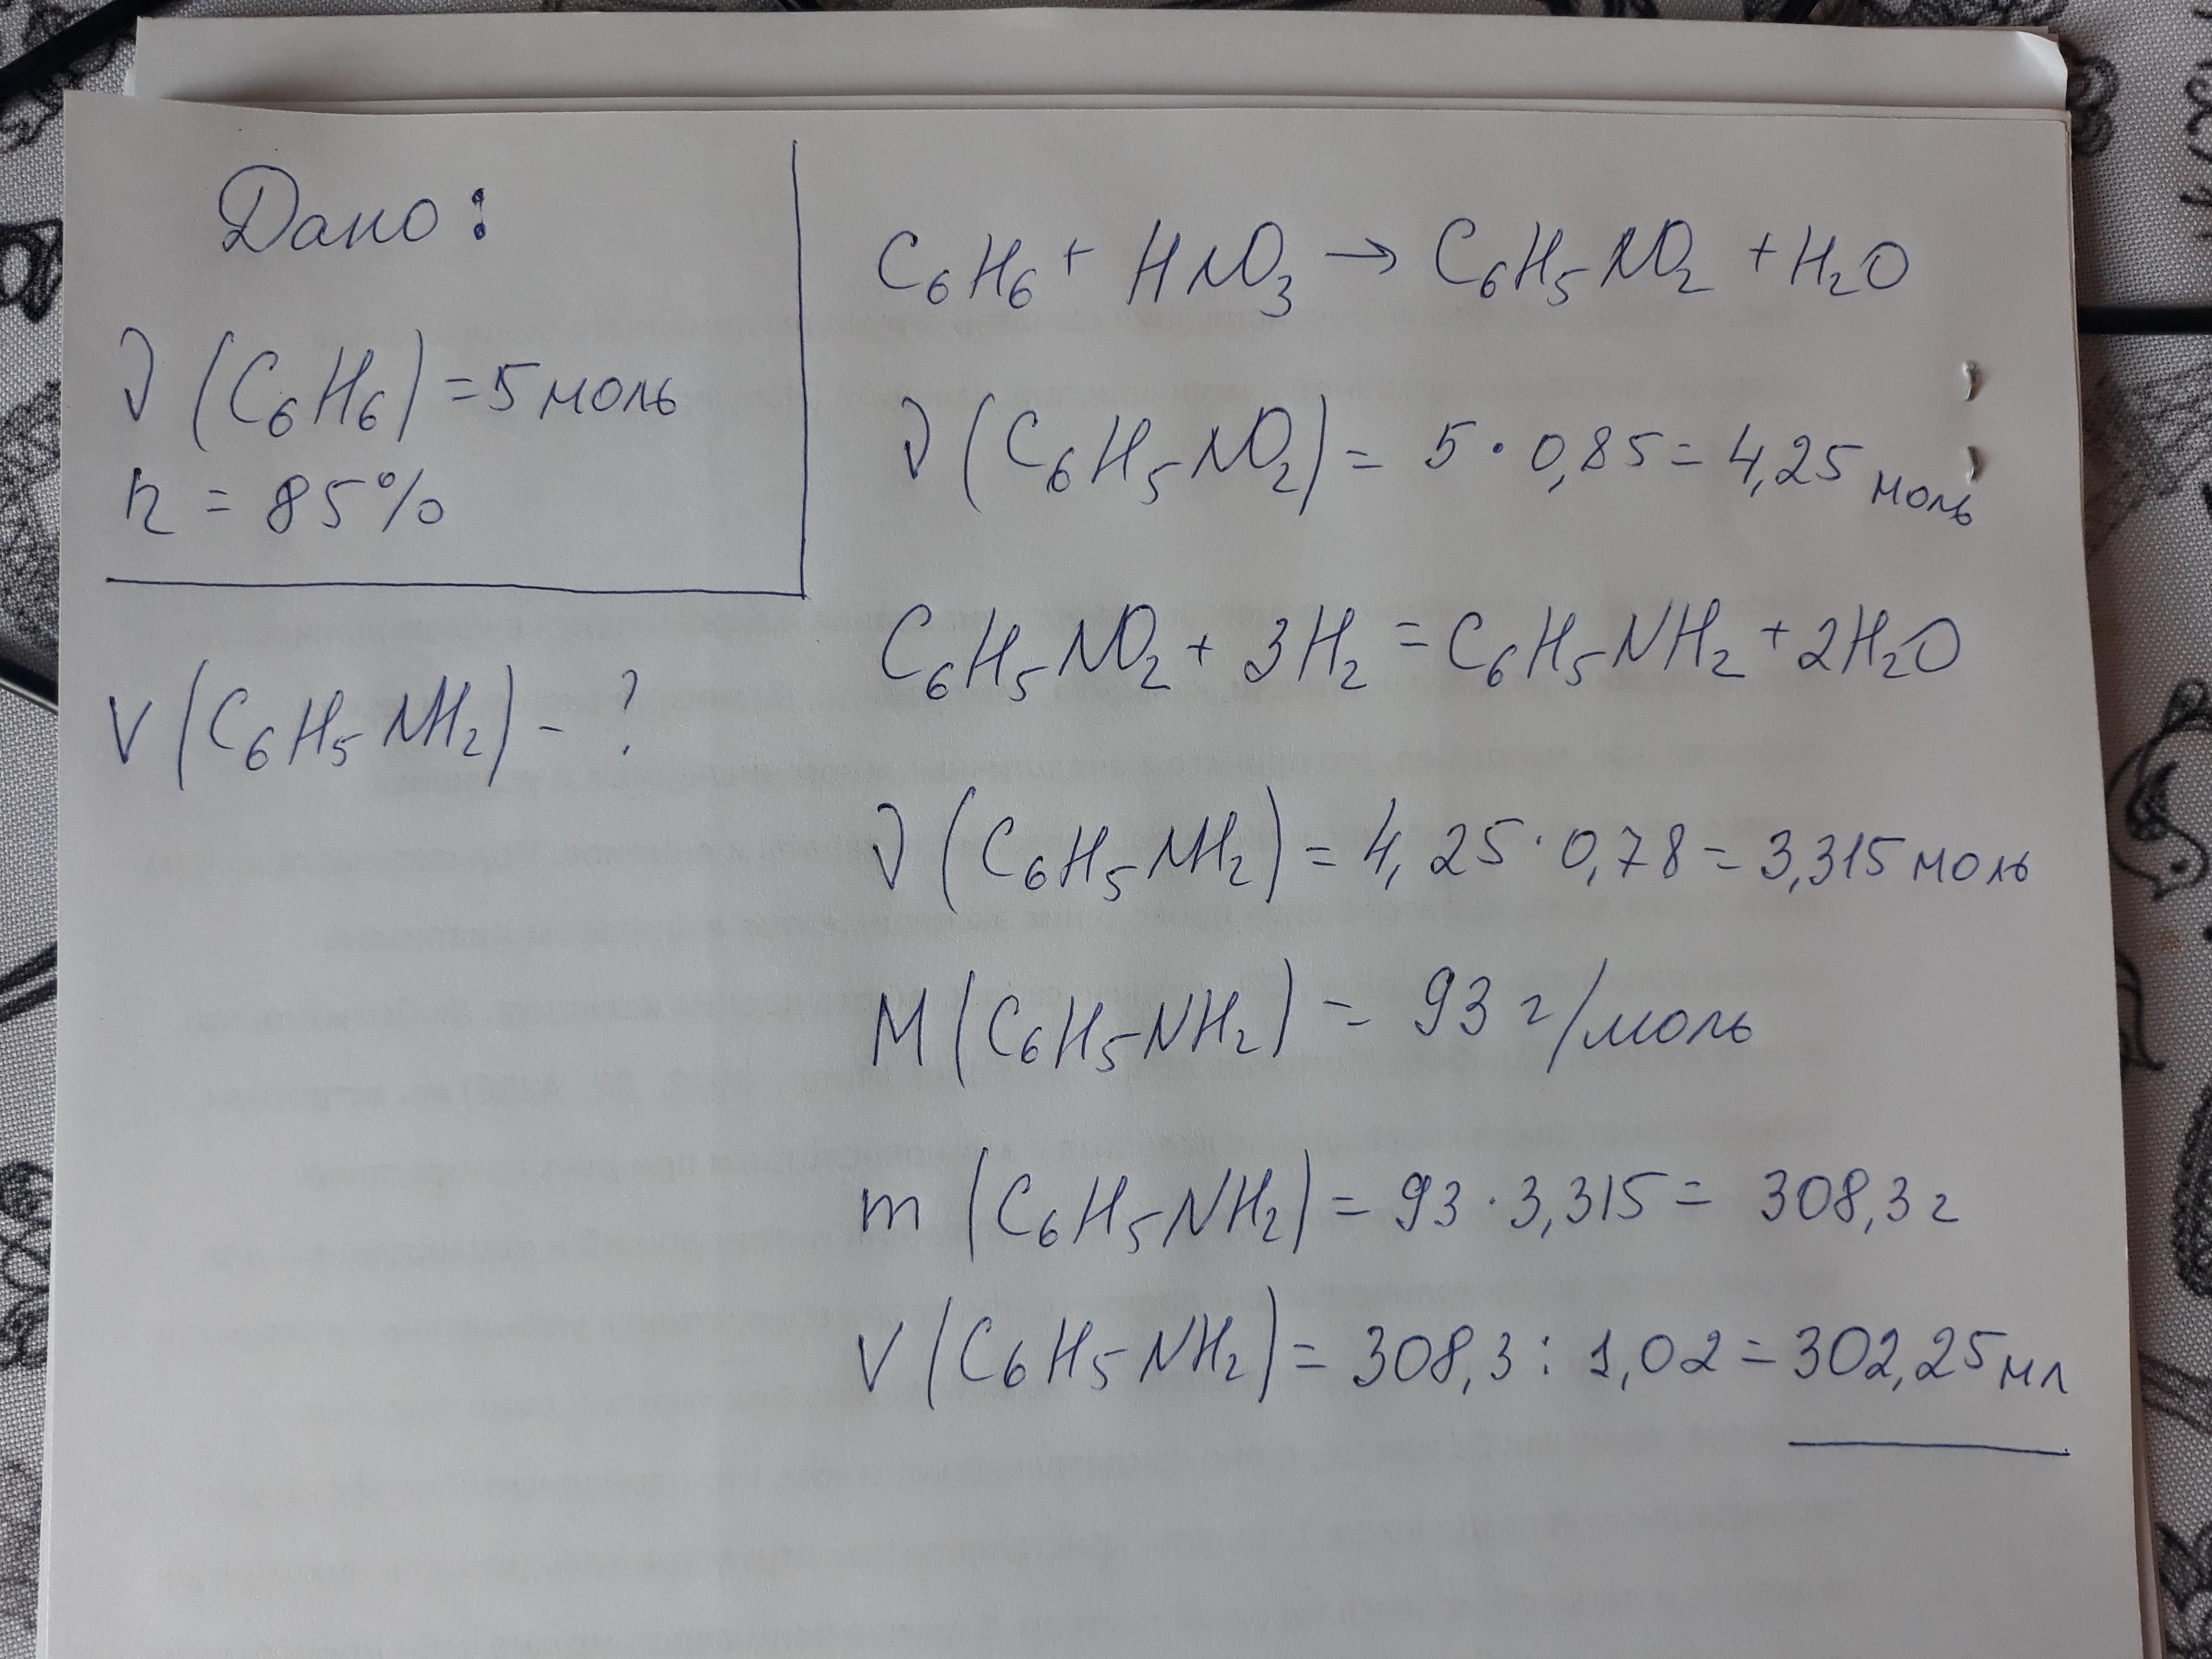 Дано:
ν (C₆H₆) = 5 моль
η = 85%
V (C₆H₅NH₂) - ?
C₆H₆ + HNO₃ → C₆H₅NO₂ + H₂O
ν (C₆H₅NO₂) = 5 · 0,85 = 4,25 моль
C₆H₅NO₂ + 3H₂ = C₆H₅NH₂ + 2H₂O
ν (C₆H₅NH₂) = 4,25 · 0,78 = 3,315 моль
M (C₆H₅NH₂) = 93 г/моль
m (C₆H₅NH₂) = 93 · 3,315 = 308,3 г
V (C₆H₅NH₂) = 308,3 : 1,02 = 302,25 мл